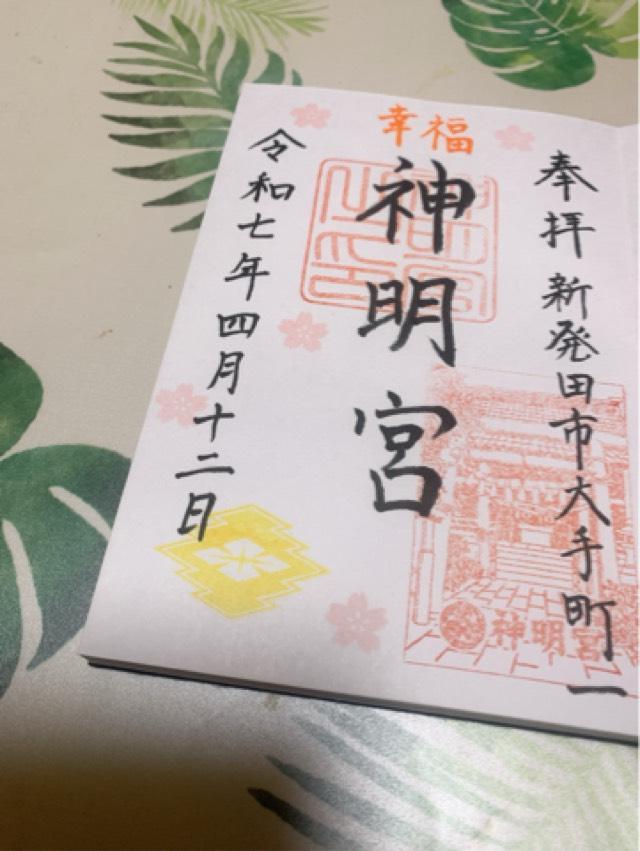 奉拝 新発田市大手町一
幸福
神明宮
令和七年四月十二日
神明宮